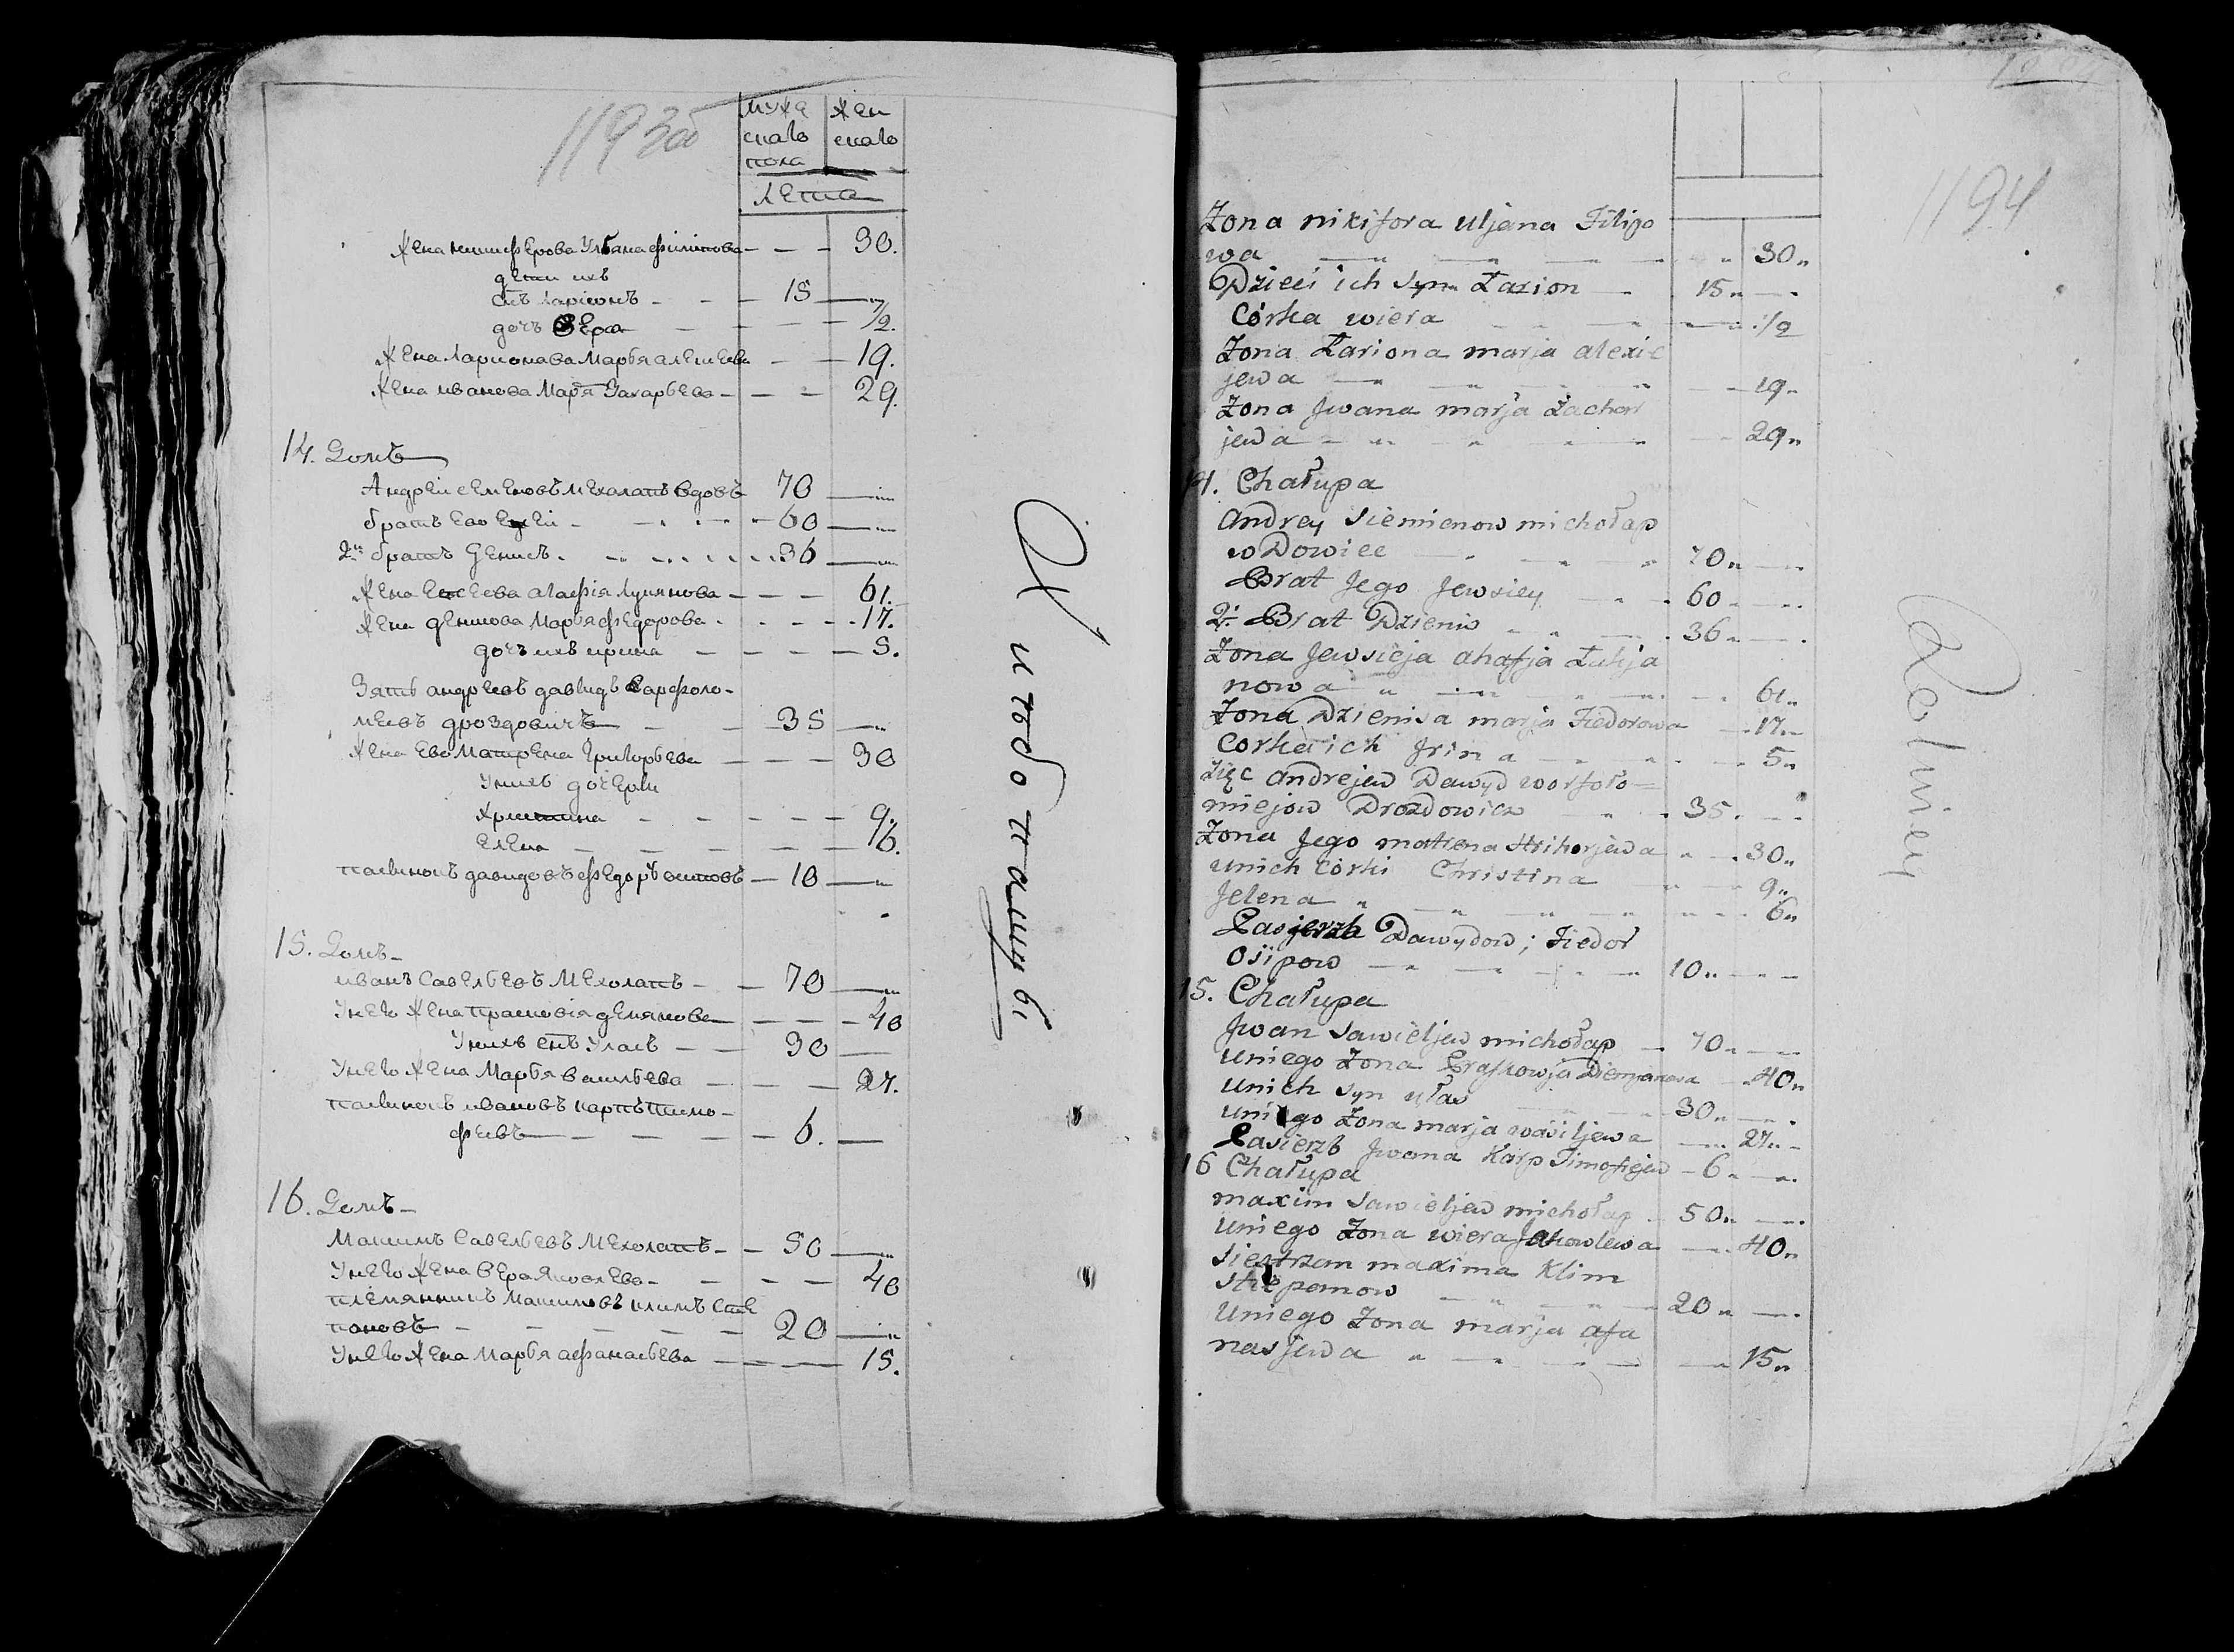 1193об
мужескаго пола
женскаго
Лета
Жена никифорова Ульяна филипова — — — 30.
дети ихъ
снъ Ларионъ — — — 15 —
дочь Вера — — — — 1/2.
Жена Ларионова Марья алексеева — — 19.
Жена иванова Марья Захарьева — — — 29.
14. Домъ
Андрей семеновъ Мехолапъ вдовъ 70 —
братъ Его Евсей — 60 —
2й братъ Денисъ . 36 —
Жена Евсеева агафiя Лукянова — — — 61.
Жена денисова Марья федорова . 17.
дочь ихъ ирина — — — — 5.
Зять андреевъ давидъ варфоло-
меевъ дроздовичъ — — 35 —
Жена Его Матрена Григорьева — — — 30
У нихъ дочери
Христина — — — — — 9.
Елена — — — — — 6.
пасынокъ давидовъ федоръ осиповъ — 10 —
15. Домъ
иванъ Савельевъ Мехолапъ — — 70 —
У него Жена прасковiя демянова — — — 40
У нихъ снъ Уласъ — — 30 —
У него Жена Марья васильева — — — 27.
пасынокъ ивановъ карпъ тимо-
феевъ — — — — 6. —
16. Домъ
Максимъ Савельевъ Мехолапъ — — 50 —
У него Жена вера Яковлева — — — — 40
племянникъ Максимовъ климъ Сте
пановъ — — — — — 20 —
У него Жена Марья афанасьева — — — 15.
1194
Żona nikifora uljana Filipo
wa 30"
Dzieci ich syn Łarion 15"
Córka wiera 1/2
Żona Łariona marja alexie
jewa 19"
Żona Jwana marja Zachar
jewa 29"
14. Chałupa
Andrey Siemienow michołap
wDowiec 70"
Brat Jego Jewsiey 60"
2. Brat Dzienis 36"
Żona Jewsieja ahafja Łukja
nowa 61"
Żona Dzienisa marja Fiedorowa 17"
Corka ich Jrina 5"
Zięc andrejew Dawyd worfoło=
miejow Drozdowicz 35
Żona Jego matrena Hrihorjewa 30"
unich córki Christina 9"
Jelena 6"
Pasjerzb Dawydow; Fiedor
Osipow 10"
15. Chałupa
Jwan Sawieljew michołap 70"
uniego Żona Praskowja Diemjanowa 40"
unich syn ułas 30"
uniego Żona marja wasiljewa 27"
Pasierzb Jwana Karp Timofiejew 6"
16 Chałupa
maxim Sawieljew michołap 50"
uniego Żona wiera Jakowlewa 40"
Siestrzan maxima Klim
Stiepanow 20"
Uniego Żona marja afa
nasjewa 15"